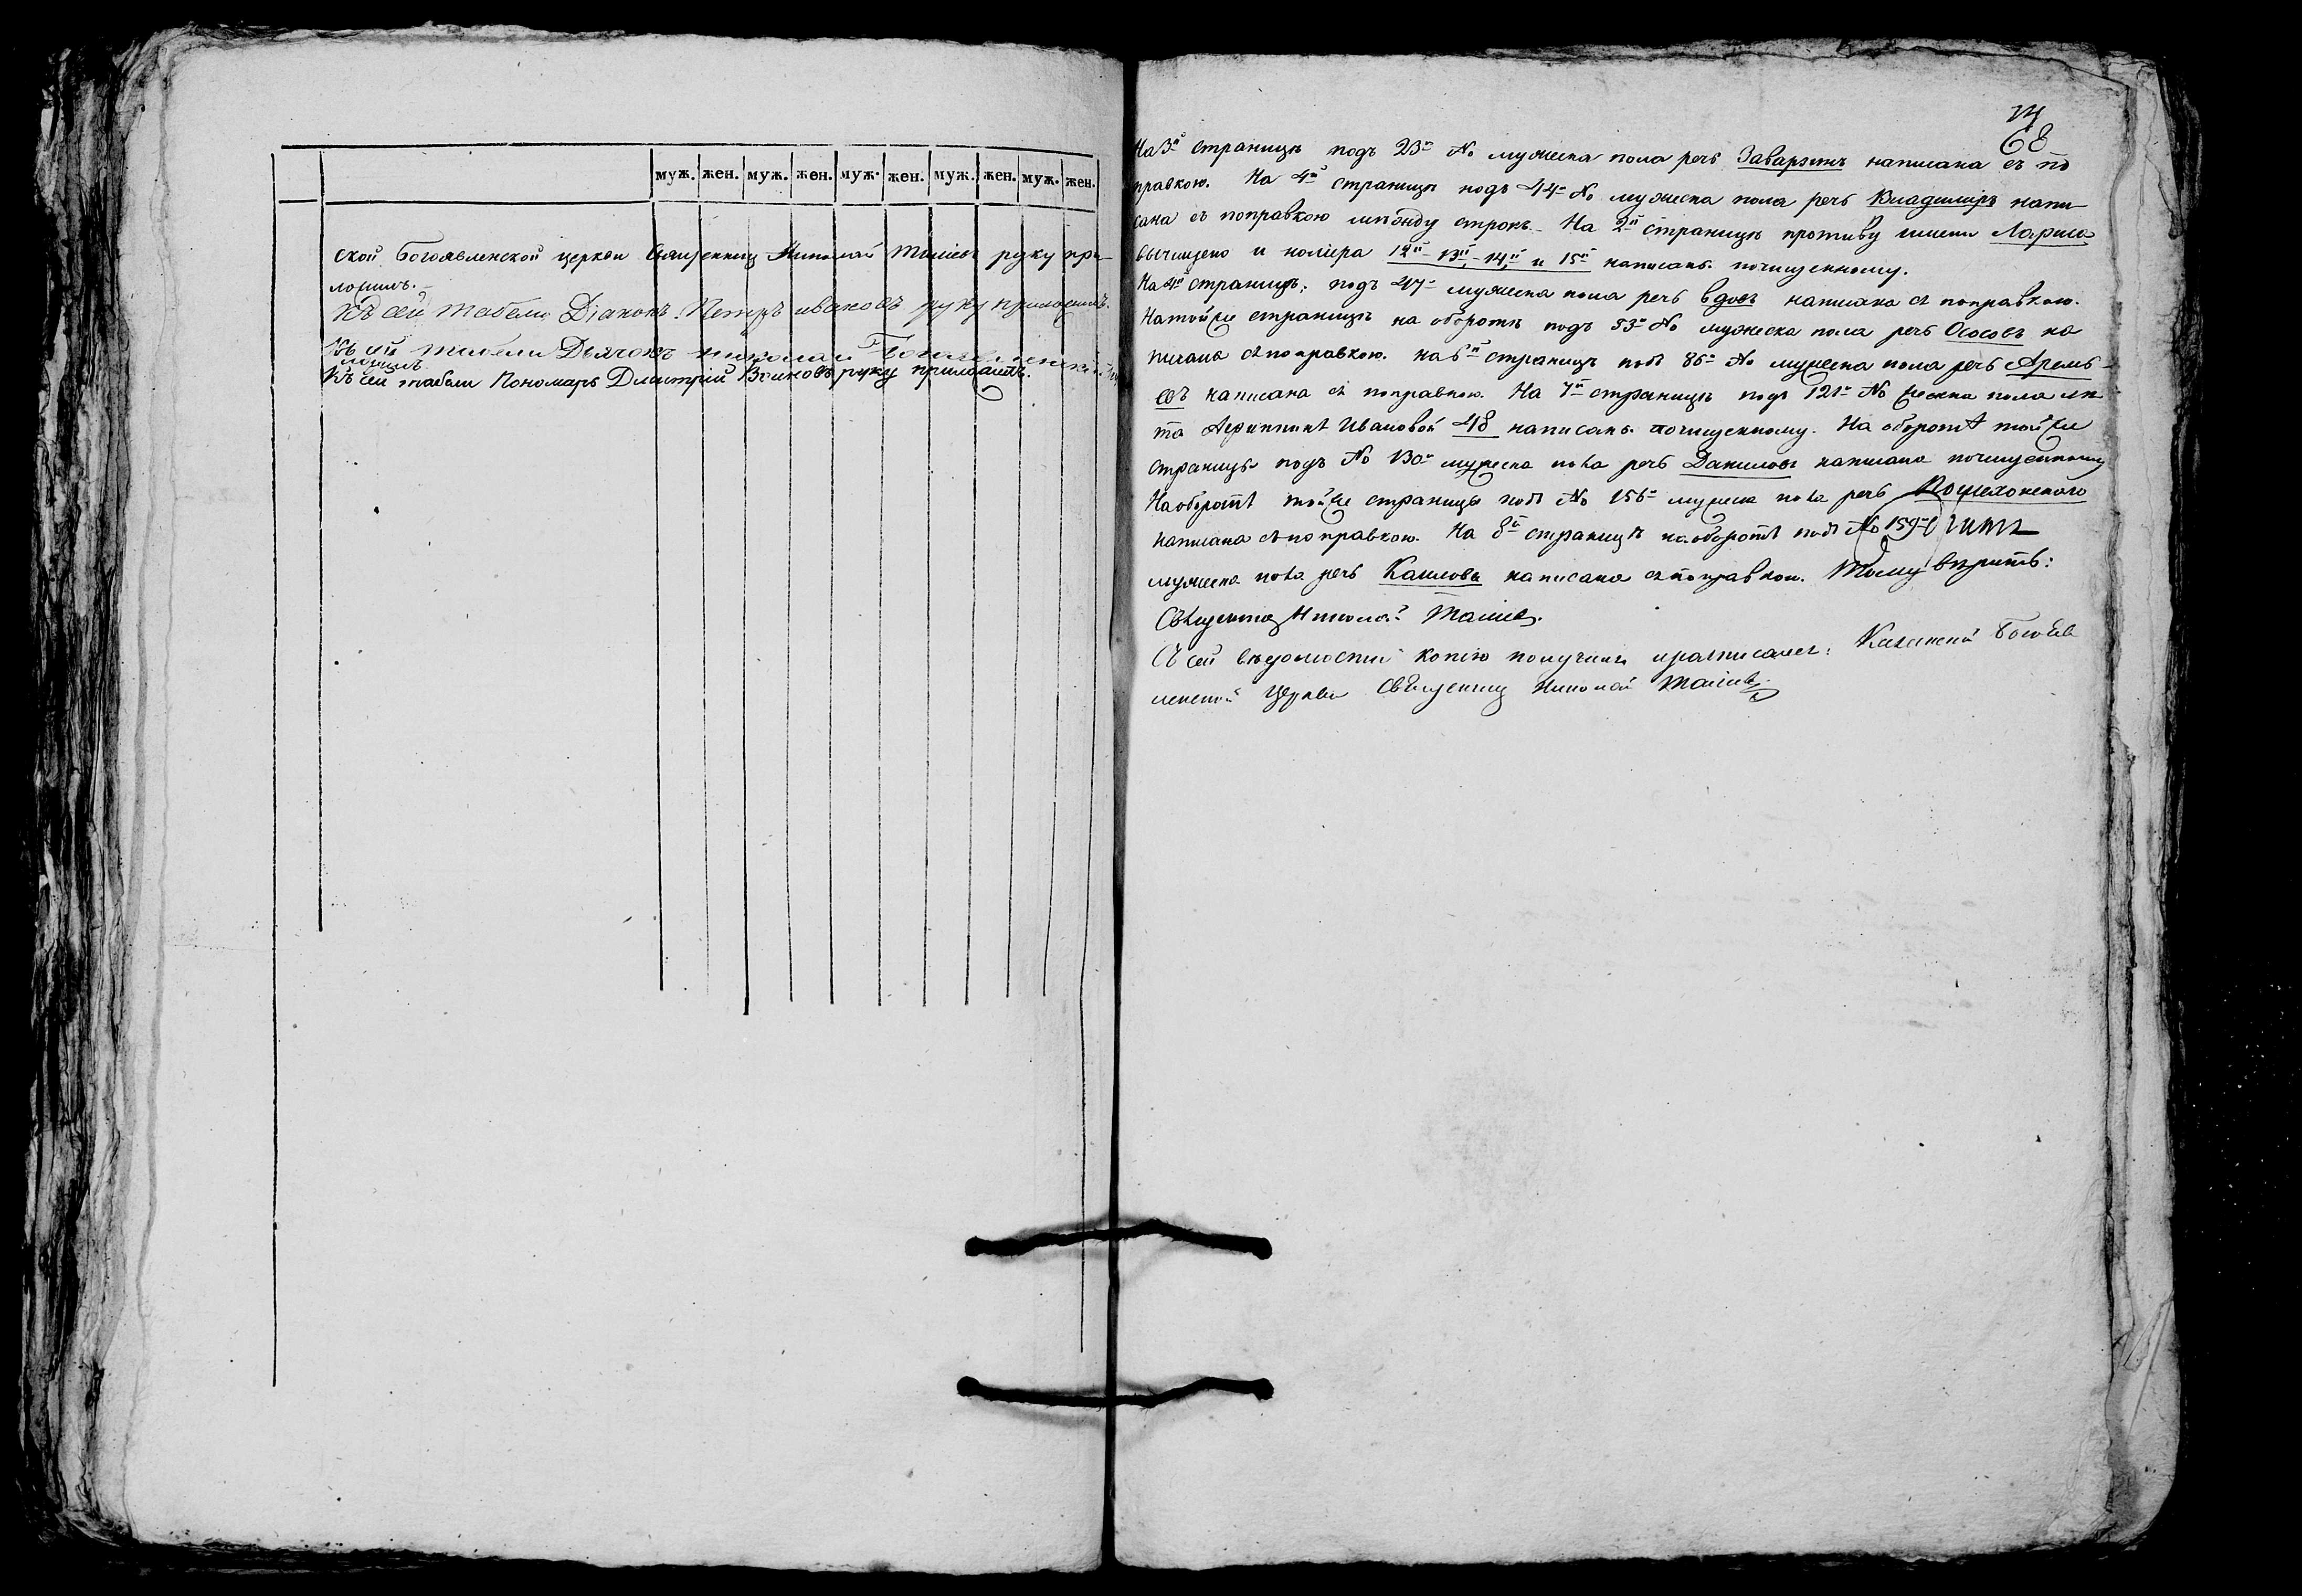 муж. жен. муж. жен. муж. жен. муж. жен. муж. жен.
ской Богоявленской церкви Священникъ Николай руку при-
ложилъ.
Къ сей табели Діаконъ Петръ ивановъ руку приложилъ.
Къ сей табели Дьячокъ николай
ложилъ
Къ сей табели Пономарь Дмитрій руку приложилъ.
68
На 3й страницѣ подъ 23м № мужеска пола речь Заварзинъ написана съ по
правкою. На 4й страницѣ подъ 44м № мужеска пола речь Владиміръ напи-
сана съ поправкою между строкъ. На 2й страницѣ противу имени Лариса
вычищено и номера 12й 13й, 14й и 15й написаны почищенному.
На 4й страницѣ, подъ 47м мужеска пола речь вдовъ написана съ поправкою.
На той же страницѣ на оборотѣ подъ 53м № мужеска пола речь Ососовъ на
писана съ поправкою. на 6й страницѣ подъ 86м № мужеска пола речь Аремь-
евъ написана съ поправкою. На 7й страницѣ подъ 121м № женска пола лѣ
та Агрипины Ивановой 48 написаны почищенному. На оборотѣ той же
страницы подъ № 130м мужеска пола речь Даниловъ написана почищенному
На оборотѣ той же страницы подъ № 156м мужеска пола речь Пошехонского
написана съ поправкою. На 8й страницѣ на оборотѣ подъ № 159м
мужеска пола речь написана съ поправкою. Тому вѣрить:
Священникъ Николай
Съ сей вѣдомости копію получилъ и росписался: Казанской Богояв
ленской Церкви Священникъ Николай